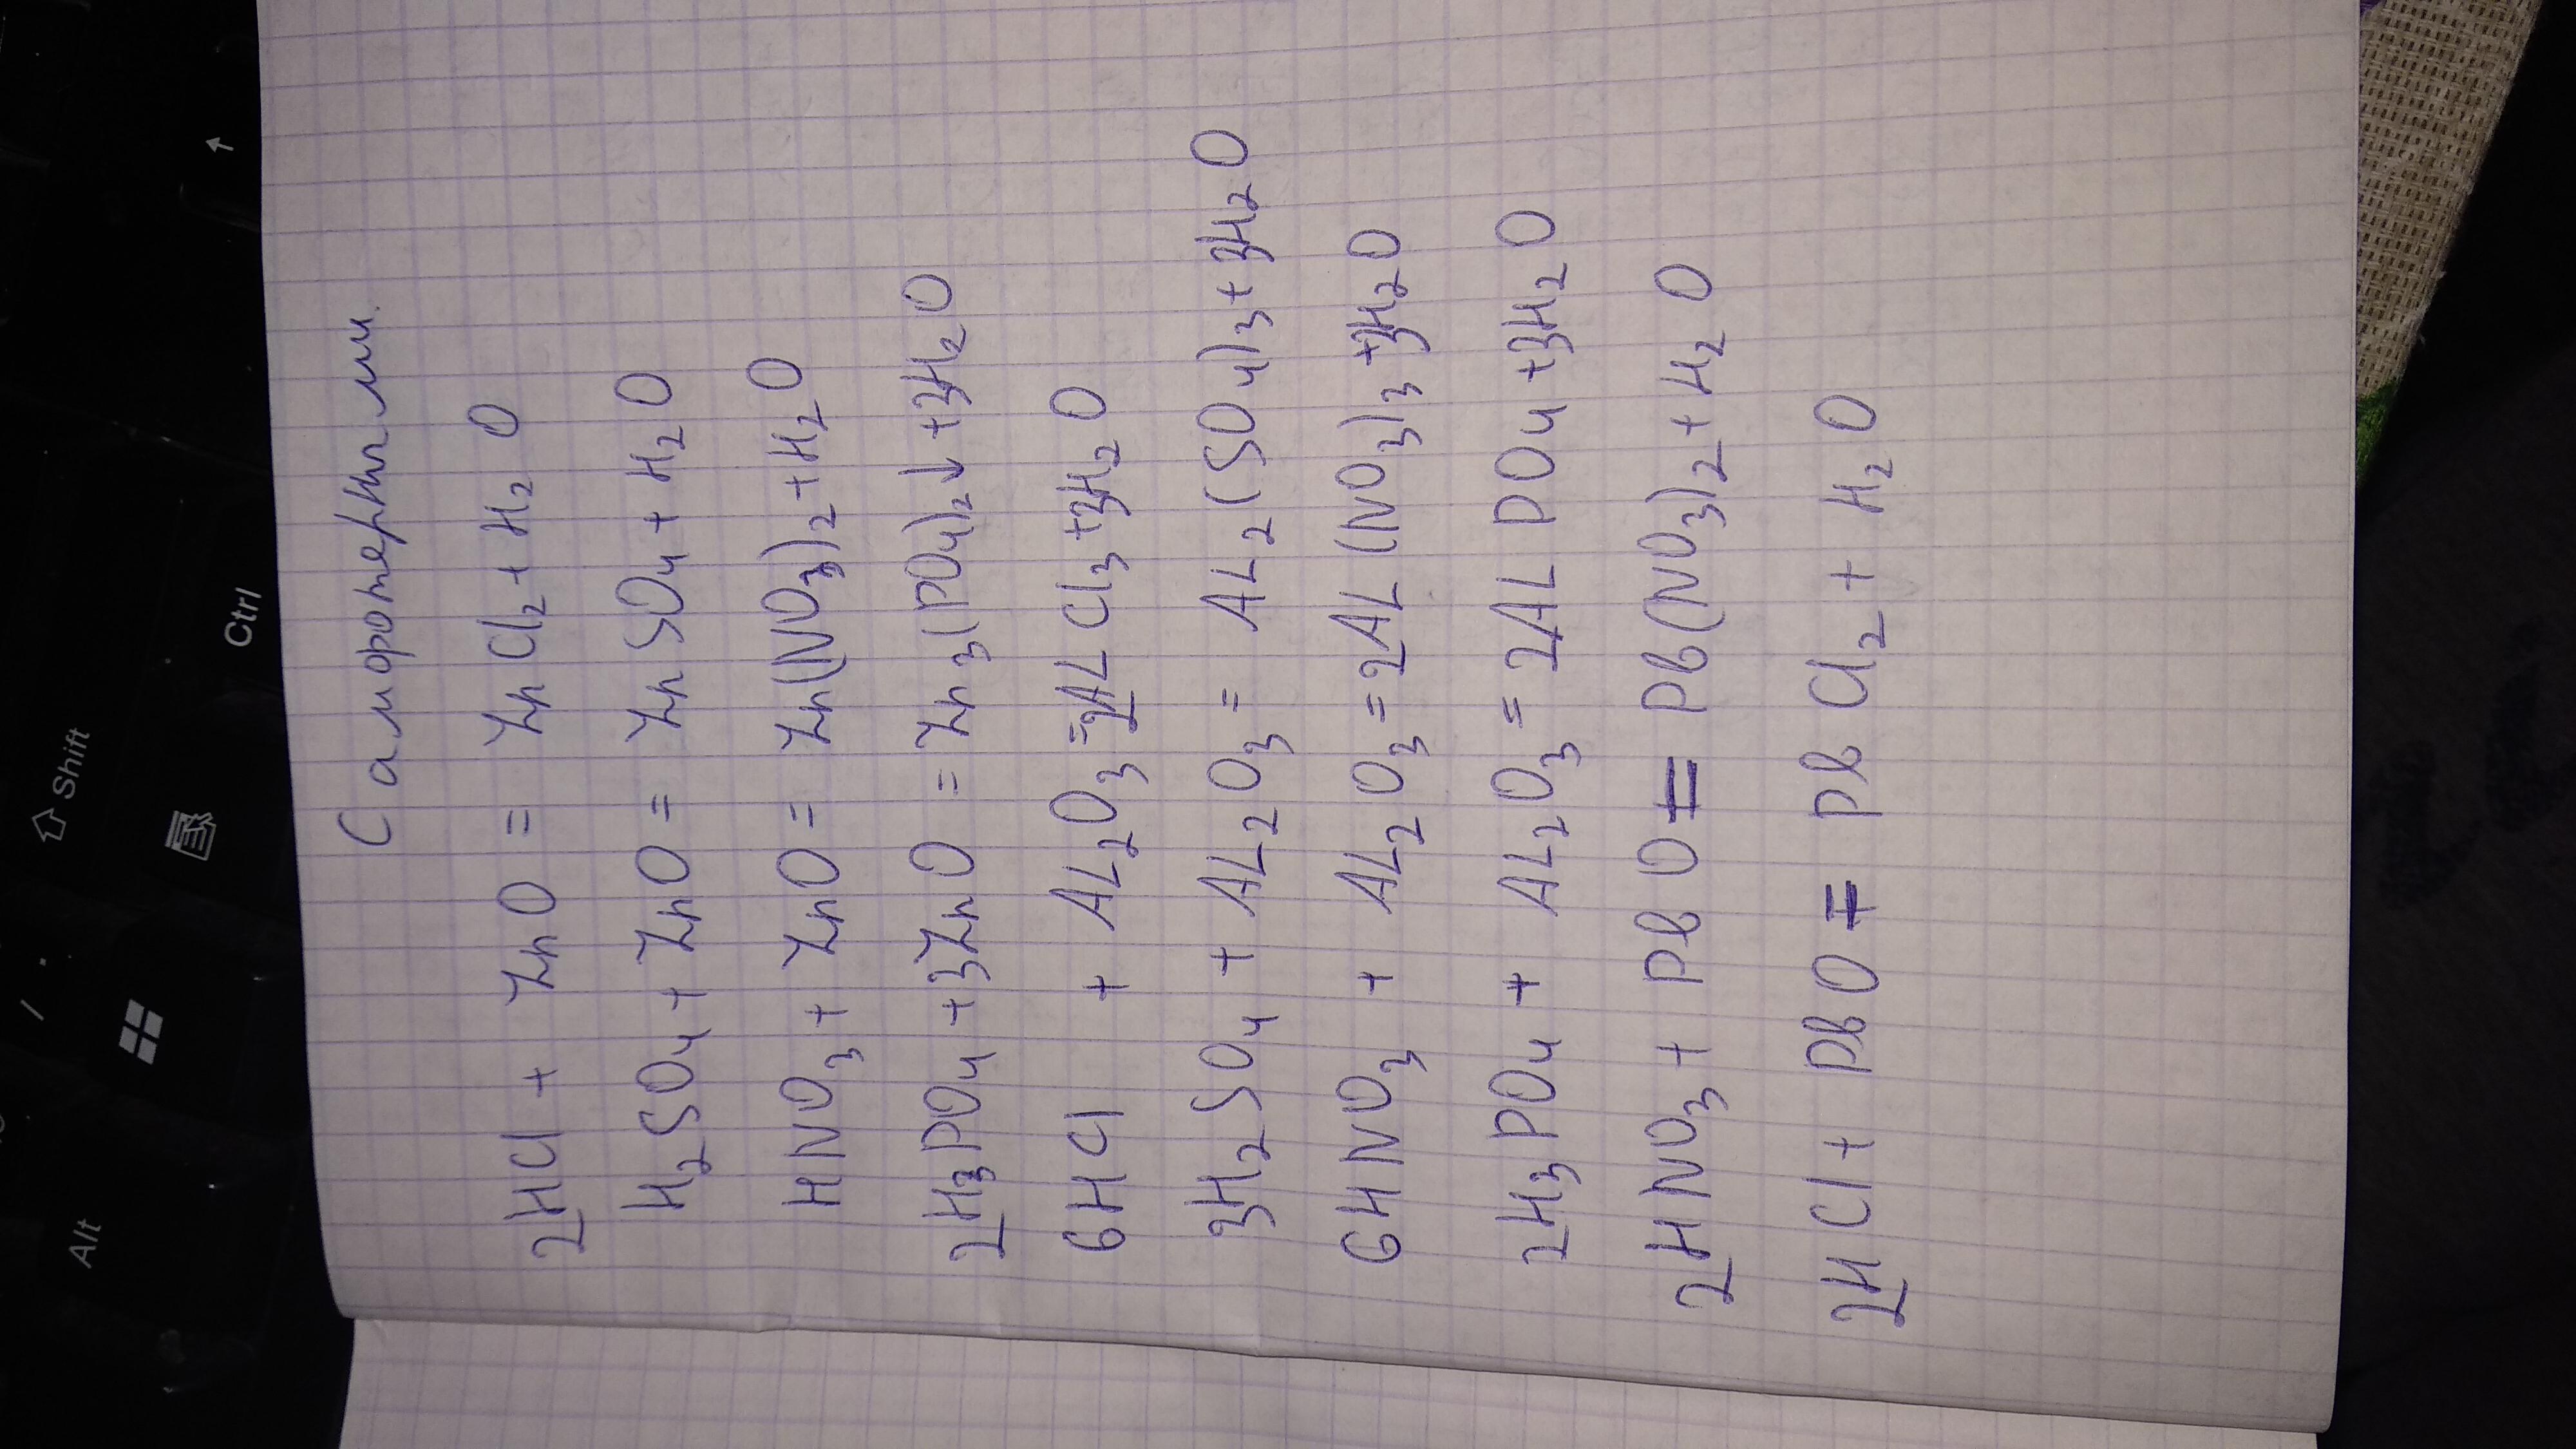 Саморотерктм.
2HCl + ZnO = ZnCl₂ + H₂O
H₂SO₄ + ZnO = ZnSO₄ + H₂O
HNO₃ + ZnO = Zn(NO₃)₂ + H₂O
2H₃PO₄ + 3ZnO = Zn₃(PO₄)₂↓ + 3H₂O
6HCl + AL₂O₃ = 2ALCl₃ + 3H₂O
3H₂SO₄ + AL₂O₃ = AL₂(SO₄)₃ + 3H₂O
6HNO₃ + AL₂O₃ = 2AL(NO₃)₃ + 3H₂O
2H₃PO₄ + AL₂O₃ = 2ALPO₄ + 3H₂O
2HNO₃ + PbO = Pb(NO₃)₂ + H₂O
2HCl + PbO = PbCl₂ + H₂O
Alt
Shift
Ctrl